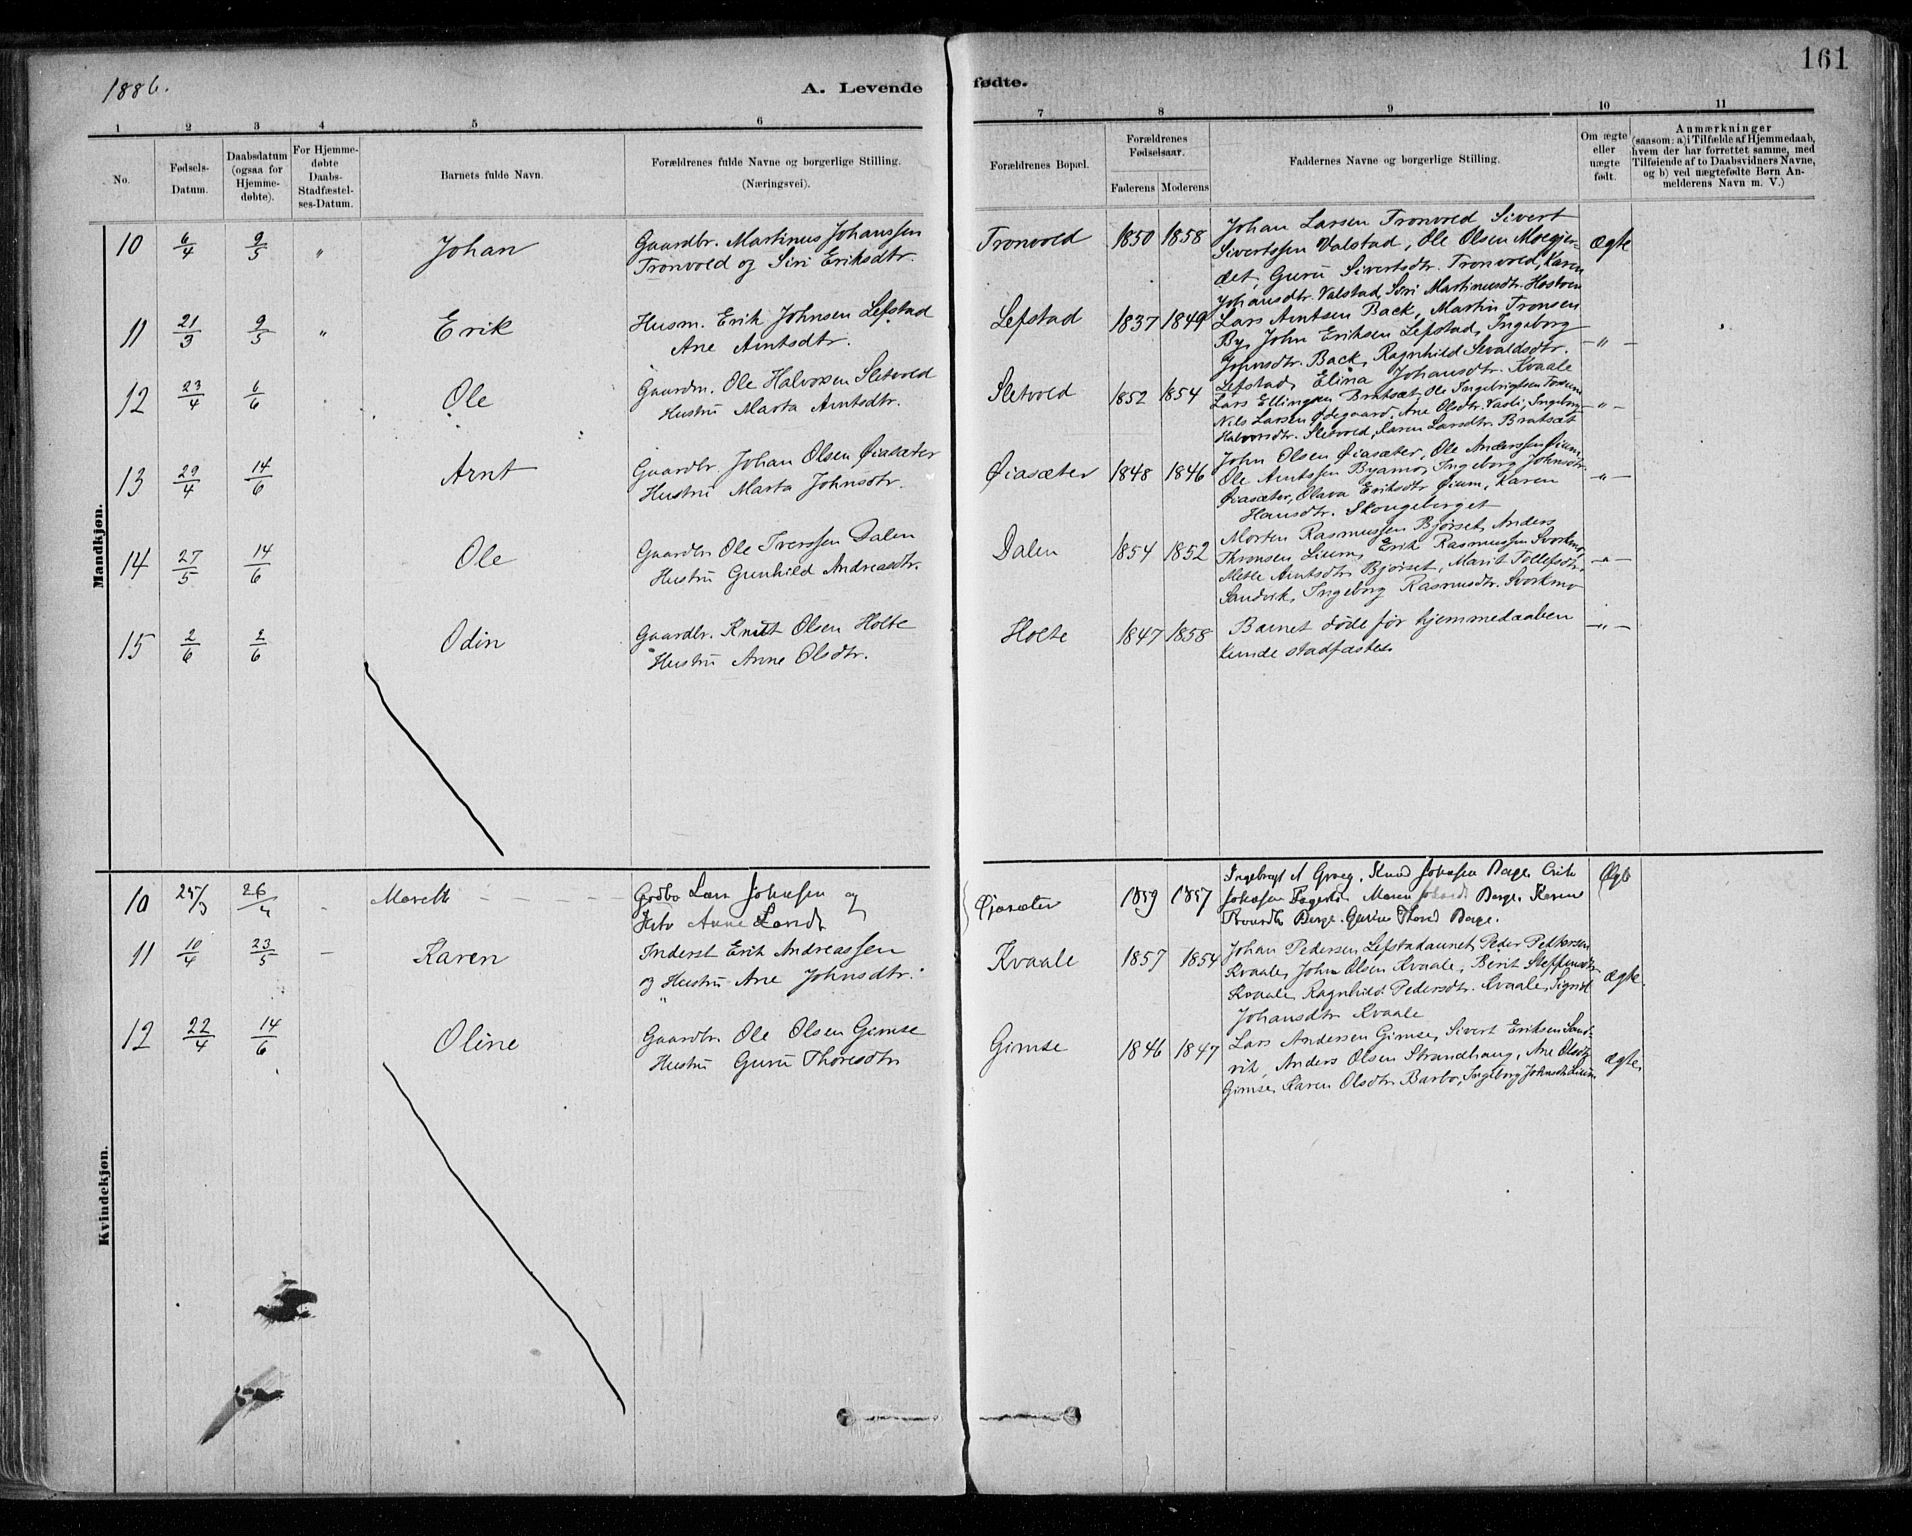 1886.
A. Levende fødte.
161
1 2 3 4 5 6 7 8 9 10 11
No.
Fødsels-Datum.
Daabsdatum (ogsaa for Hjemme-døbte).
For Hjemme-døbte Daabs-Stadfæstel-ses-Datum.
Barnets fulde Navn.
Forældrenes fulde Navne og borgerlige Stilling.
(Næringsvei).
Forældrenes Bopæl.
Forældrenes Fødselsaar.
Faderens Moderens
Faddernes Navne og borgerlige Stilling.
Om ægte eller uægte født.
Anmærkninger
(saasom: a) i Tilfælde af Hjemmedaab,
hvem der har forrettet samme, med
Tilføiende af to Daabsvidners Navne,
og b) ved uægtefødte Børn An-
melderens Navn m. V.)
Mandkjøn.
10 6/4 9/5 " Johan
Gaardbr. Martinus Johanssen
Tronvold og Siri Eriksdtr.
Tronvold 1850 1858
Johan Larsen Tronvold Sivert
Sivertssen Valstad, Ole Olsen Moegjer-
det, Guru Sivertsdtr. Tronvold, Karen
Johansdtr. Valstad, Siri Martinusdtr. Hostoen
Ægte
11 21/3 9/5 " Erik
Husm. Erik Johnsen Lefstad
Ane Arntsdtr.
Lefstad 1837 1849
Lars Arntsen Back, Martin Tronsen
By, John Eriksen Lefstad, Ingeborg
Johnsdtr. Back, Ragnhild Sevaldsdtr.
Lefstad, Elina Johansdtr. Kvaale
—"—
12 23/4 6/6 Ole
Gaardm. Ole Halvorsen Sletvold
Hustru Marta Arntsdtr.
Sletvold 1852 1854
Lars Ellingsen Bratsæt, Ole Ingebrigtsen Tossum
Nils Larsen Ødegaard, Ane Olsdtr. Vasli, Ingeborg
Halvorsdtr. Sletvold, Karen Larsdtr. Bratsæt
—"—
13 29/4 14/6 Arnt
Gaardbr. Johan Olsen Øiasæter
Hustru Marta Johnsdtr.
Øiasæter 1848 1846
John Olsen Øiasæter, Ole Anderssen Øium,
Ole Arntssen Byamo, Ingeborg Johnsdtr.
Øiasæter, Olava Eriksdtr Øium, Karen
Hansdtr. Skougeberget
—"—
14 27/5 14/6 Ole
Gaardbr. Ole Iverssen Dalen
Hustru Gunhild Andreasdtr.
Dalen 1854 1852
Morten Rasmussen Bjørset, Anders
Thronsen Lium, Erik Rasmussen Svorkmo,
Mette Arntsdtr. Bjørset, Marit Tollefsdtr.
Sandvik, Ingeborg Rasmusdtr. Svorkmo
—"—
15 2/6 2/6 Odin
Gaardbr. Knut Olsen Holte
Hustru Anne Olsdtr.
Holte 1847 1858
Barnet døde før hjemmedaaben
kunde stadfæstes
—"—
Kvindekjøn.
10 25/3 26/4 - Marett
Grdbr Lars Johnsen og
Hstr Anne Larsdt
Øjasæter 1859 1857
Knud Johnsen Berge Erik
Johnsen Maren Berge Karen
Berge. Berge.
Ægte
11 10/4 23/5 — Karen
Inderst Erik Andreassen
og Hustru Ane Johnsdtr.
Kvaale 1857 1854
Johan Pedersen Lefstadaunet, Peder Pettersen
Kvaale, John Olsen Kvaale, Berit Steffensdtr.
Kvaale, Ragnhild Pedersdtr. Kvaale, Sigrid
Johansdtr Kvaale
Ægte.
12 22/4 14/6 Oline
Gaardbr. Ole Olsen Gimse
Hustru Guru Thoresdtr
Gimse 1846 1847
Lars Andersen Gimse, Sivert Eriksen Sand-
vik, Anders Olsen Strandhaug, Ane Olsdtr.
Gimse, Karen Olsdtr. Barbo, Ingeborg Johnsdtr Lium
Ægte